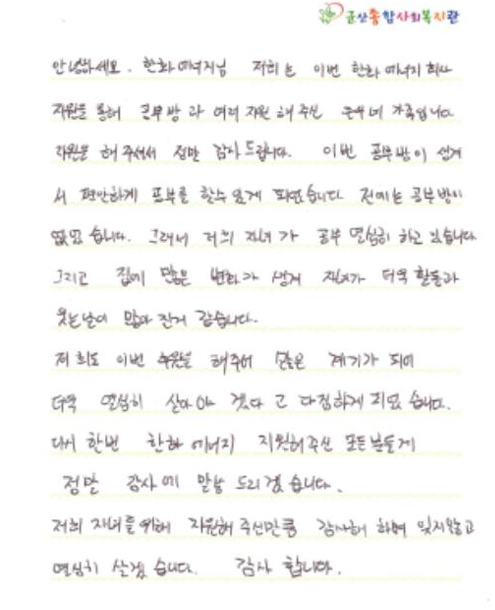 군산종합사회복지관
안녕하세요. 한화에너지님 저희는 이번 한화에너지 회사
지원을 통해 공부방과 여러 지원 해 주신 네 가족입니다
지원을 해주셔서 정말 감사드립니다. 이번 공부방이 생겨
서 편안하게 공부를 할수 있게 되었습니다 전에는 공부방이
없었습니다. 그래서 저의 자녀가 공부 열심히 하고 있습니다
그리고 집에 많은 변화가 생겨 자녀가 더욱 활동과
웃는날이 많아 진거 같습니다.
저희도 이번 해주어 계기가 되어
더욱 열심히 살아야 겠다고 다짐하게 되었습니다.
다시 한번 한화 에너지 지원해주신 모든분들게
정말 감사에 말씀 드리겠습니다.
저희 자녀를 위해 지원해 주신만큼 감사해 하며 잊지않고
열심히 살겠습니다. 감사 합니다.